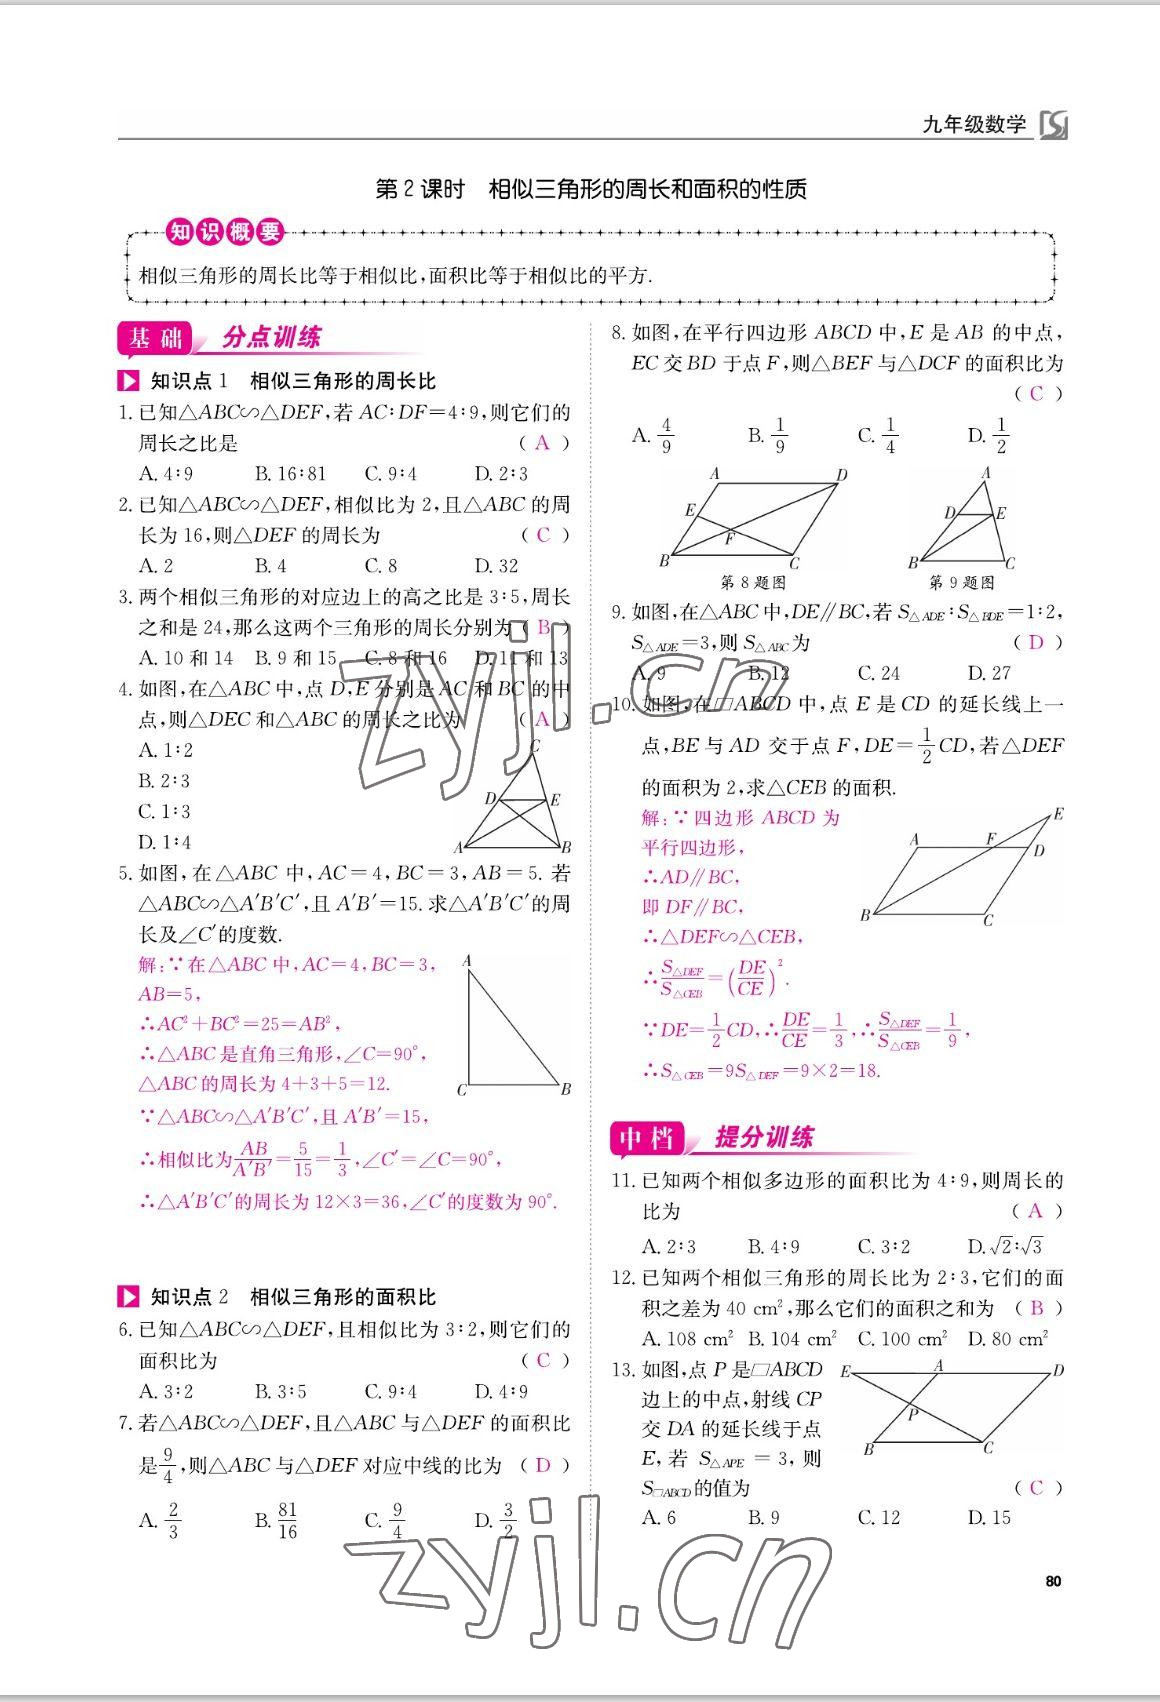 九年级数学
第2课时 相似三角形的周长和面积的性质
知识概要
相似三角形的周长比等于相似比,面积比等于相似比的平方.
基础 分点训练
知识点1 相似三角形的周长比
1. 已知△ABC∽△DEF,若 AC∶DF=4∶9,则它们的
周长之比是 ( A )
A. 4∶9 B. 16∶81 C. 9∶4 D. 2∶3
2. 已知△ABC∽△DEF,相似比为 2,且△ABC 的周
长为 16,则△DEF 的周长为 ( C )
A. 2 B. 4 C. 8 D. 32
3. 两个相似三角形的对应边上的高之比是 3∶5,周长
之和是 24,那么这两个三角形的周长分别为 ( B )
A. 10 和 14 B. 9 和 15 C. 8 和 16 D. 11 和 13
4. 如图,在△ABC 中,点 D,E 分别是 AC 和 BC 的中
点,则△DEC 和△ABC 的周长之比为 ( A )
A. 1∶2
B. 2∶3
C. 1∶3
D. 1∶4
C
D E
A B
5. 如图,在△ABC 中,AC=4,BC=3,AB=5. 若
△ABC∽△A′B′C′,且 A′B′=15. 求△A′B′C′的周
长及∠C′的度数.
解:∵在△ABC 中,AC=4,BC=3,
AB=5,
∴AC²+BC²=25=AB²,
∴△ABC 是直角三角形,∠C=90°,
△ABC 的周长为 4+3+5=12.
∵△ABC∽△A′B′C′,且 A′B′=15,
∴相似比为 AB/A′B′=5/15=1/3,∠C′=∠C=90°,
∴△A′B′C′的周长为 12×3=36,∠C′的度数为 90°.
A
C B
知识点2 相似三角形的面积比
6. 已知△ABC∽△DEF,且相似比为 3∶2,则它们的
面积比为 ( C )
A. 3∶2 B. 3∶5 C. 9∶4 D. 4∶9
7. 若△ABC∽△DEF,且△ABC 与△DEF 的面积比
是 9/4,则△ABC 与△DEF 对应中线的比为 ( D )
A. 2/3 B. 81/16 C. 9/4 D. 3/2
8. 如图,在平行四边形 ABCD 中,E 是 AB 的中点,
EC 交 BD 于点 F,则△BEF 与△DCF 的面积比为
( C )
A. 4/9 B. 1/9 C. 1/4 D. 1/2
A D
E
F
B C
第8题图
A
D E
B C
第9题图
9. 如图,在△ABC 中,DE∥BC,若 S△ADE∶S△BDE=1∶2,
S△ADE=3,则 S△ABC为 ( D )
A. 9 B. 12 C. 24 D. 27
10. 如图,在□ABCD 中,点 E 是 CD 的延长线上一
点,BE 与 AD 交于点 F,DE=1/2 CD,若△DEF
的面积为 2,求△CEB 的面积.
解:∵四边形 ABCD 为
平行四边形,
∴AD∥BC,
即 DF∥BC,
∴△DEF∽△CEB,
∴S△DEF/S△CEB=(DE/CE)².
∵DE=1/2 CD,∴DE/CE=1/3,∴S△DEF/S△CEB=1/9,
∴S△CEB=9S△DEF=9×2=18.
E
A F D
B C
中档 提分训练
11. 已知两个相似多边形的面积比为 4∶9,则周长的
比为 ( A )
A. 2∶3 B. 4∶9 C. 3∶2 D. √2∶√3
12. 已知两个相似三角形的周长比为 2∶3,它们的面
积之差为 40 cm²,那么它们的面积之和为 ( B )
A. 108 cm² B. 104 cm² C. 100 cm² D. 80 cm²
13. 如图,点 P 是□ABCD
边上的中点,射线 CP
交 DA 的延长线于点
E,若 S△APE = 3,则
S□ABCD的值为 ( C )
A. 6 B. 9 C. 12 D. 15
E A D
P
B C
80
zyjl.cn
zyjl.cn